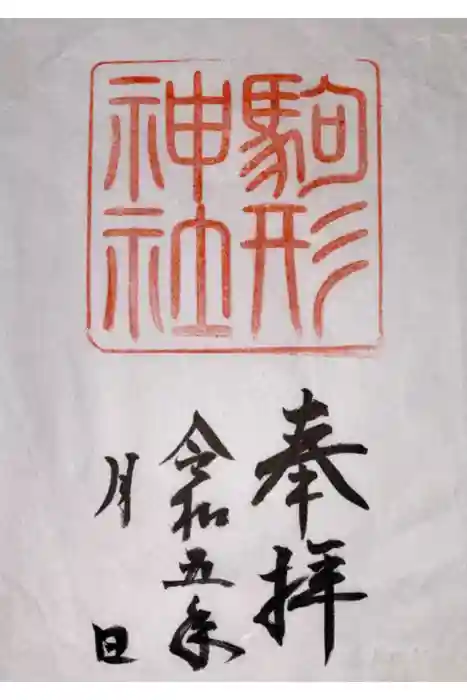 駒形
神社
奉拝
令和五年
月
日